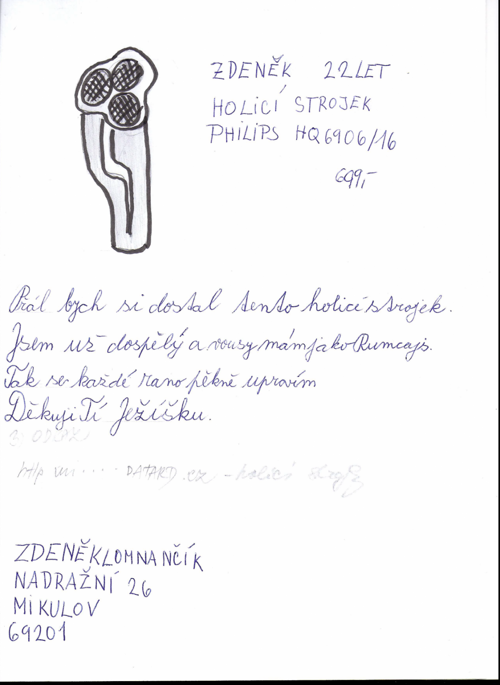 ZDENĚK 22 LET
HOLICÍ STROJEK
PHILIPS HQ6906/16
699,-
Přál bych si dostal tento holicí strojek.
Jsem už dospělý a vousy mám jako Rumcajs.
Tak se každé rano pěkně upravím
Děkuji Tí Ježíšku.
DATART.cz - holicí
ZDENĚK LOMNANČÍK
NADRAŽNÍ 26
MIKULOV
69201